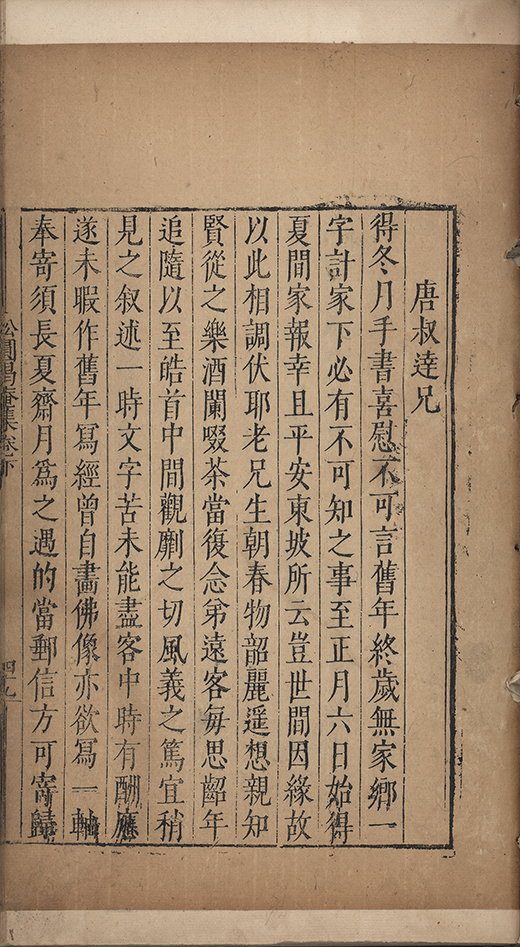 唐叔達兄
得冬月手書喜慰不可言舊年終歲無家鄉一
字計家下必有不可知之事至正月六日始得
夏間家報幸且平安東坡所云豈世間因緣故
以此相調伏耶老兄生朝春物韶麗遥想親知
賢從之樂酒闌啜茶當復念弟遠客每思齠年
追隨以至皓首中間觀劘之切風義之篤宜稍
見之叙述一時文字苦未能盡客中時有酬應
遂未暇作舊年寫經曾自畫佛像亦欲寫一軸
奉寄須長夏齋月為之遇的當郵信方可寄歸
松圓偈庵集卷下 四十九